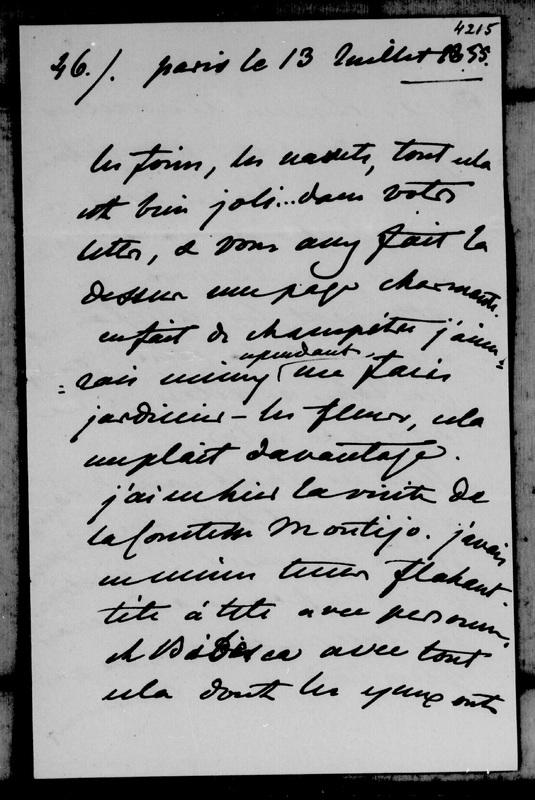 4215
46./. paris le 13 Juillet 1855.
les foins, les navets, tout cela
est bien joli... dans votre
lettre, & vous avez fait la
dessus une page charmante.
en fait de champêtre j'aime=
=rais mieux cependant, me faire
jardinier - les fleurs, cela
me plait davantage.
j'ai eu hier la visite de
la Comtesse Montijo. j'avais
en même tems Flahaut.
tête à tête avec personne.
et avec tout
cela dont les yeux ont